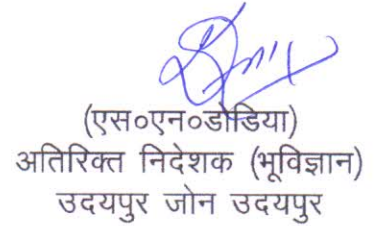 (एस०एन०डोडिया)
अतिरिक्त निदेशक (भूविज्ञान)
उदयपुर जोन उदयपुर